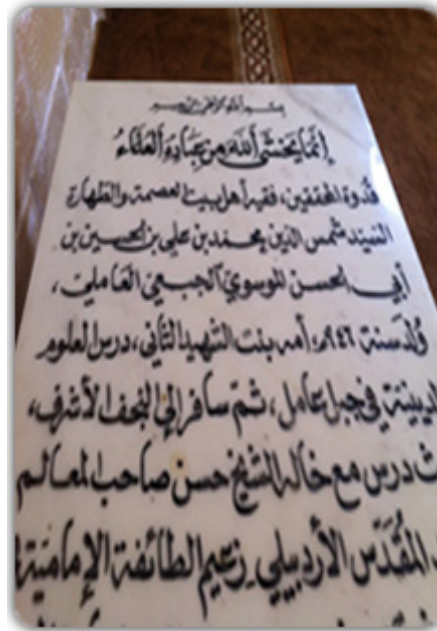 بسم الله الرحمن الرحيم
إنما يخشى الله من عباده العلماء
قدوة المحققين، فقيه أهل بيت العصمة والطهارة
السيد شمس الدين محمد بن علي بن الحسين بن
أبي الحسن الموسوي الجبعي العاملي،
ولد سنة ٩٤٦هـ، أمه بنت الشهيد الثاني، درس العلوم
الدينية في جبل عامل، ثم سافر إلى النجف الأشرف،
درس مع خاله الشيخ حسن صاحب المعالم
المُقدَّس الأردبيلي زعيم الطائفة الإمامية